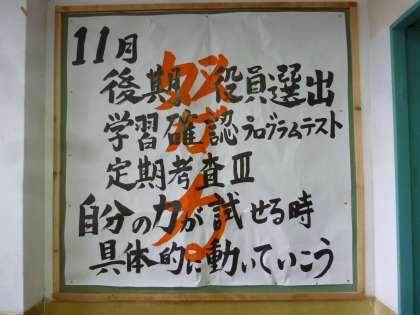 11月
後期 役員選出
学習確認プログラムテスト
定期考査Ⅲ
自分の力が試せる時
具体的に動いていこう